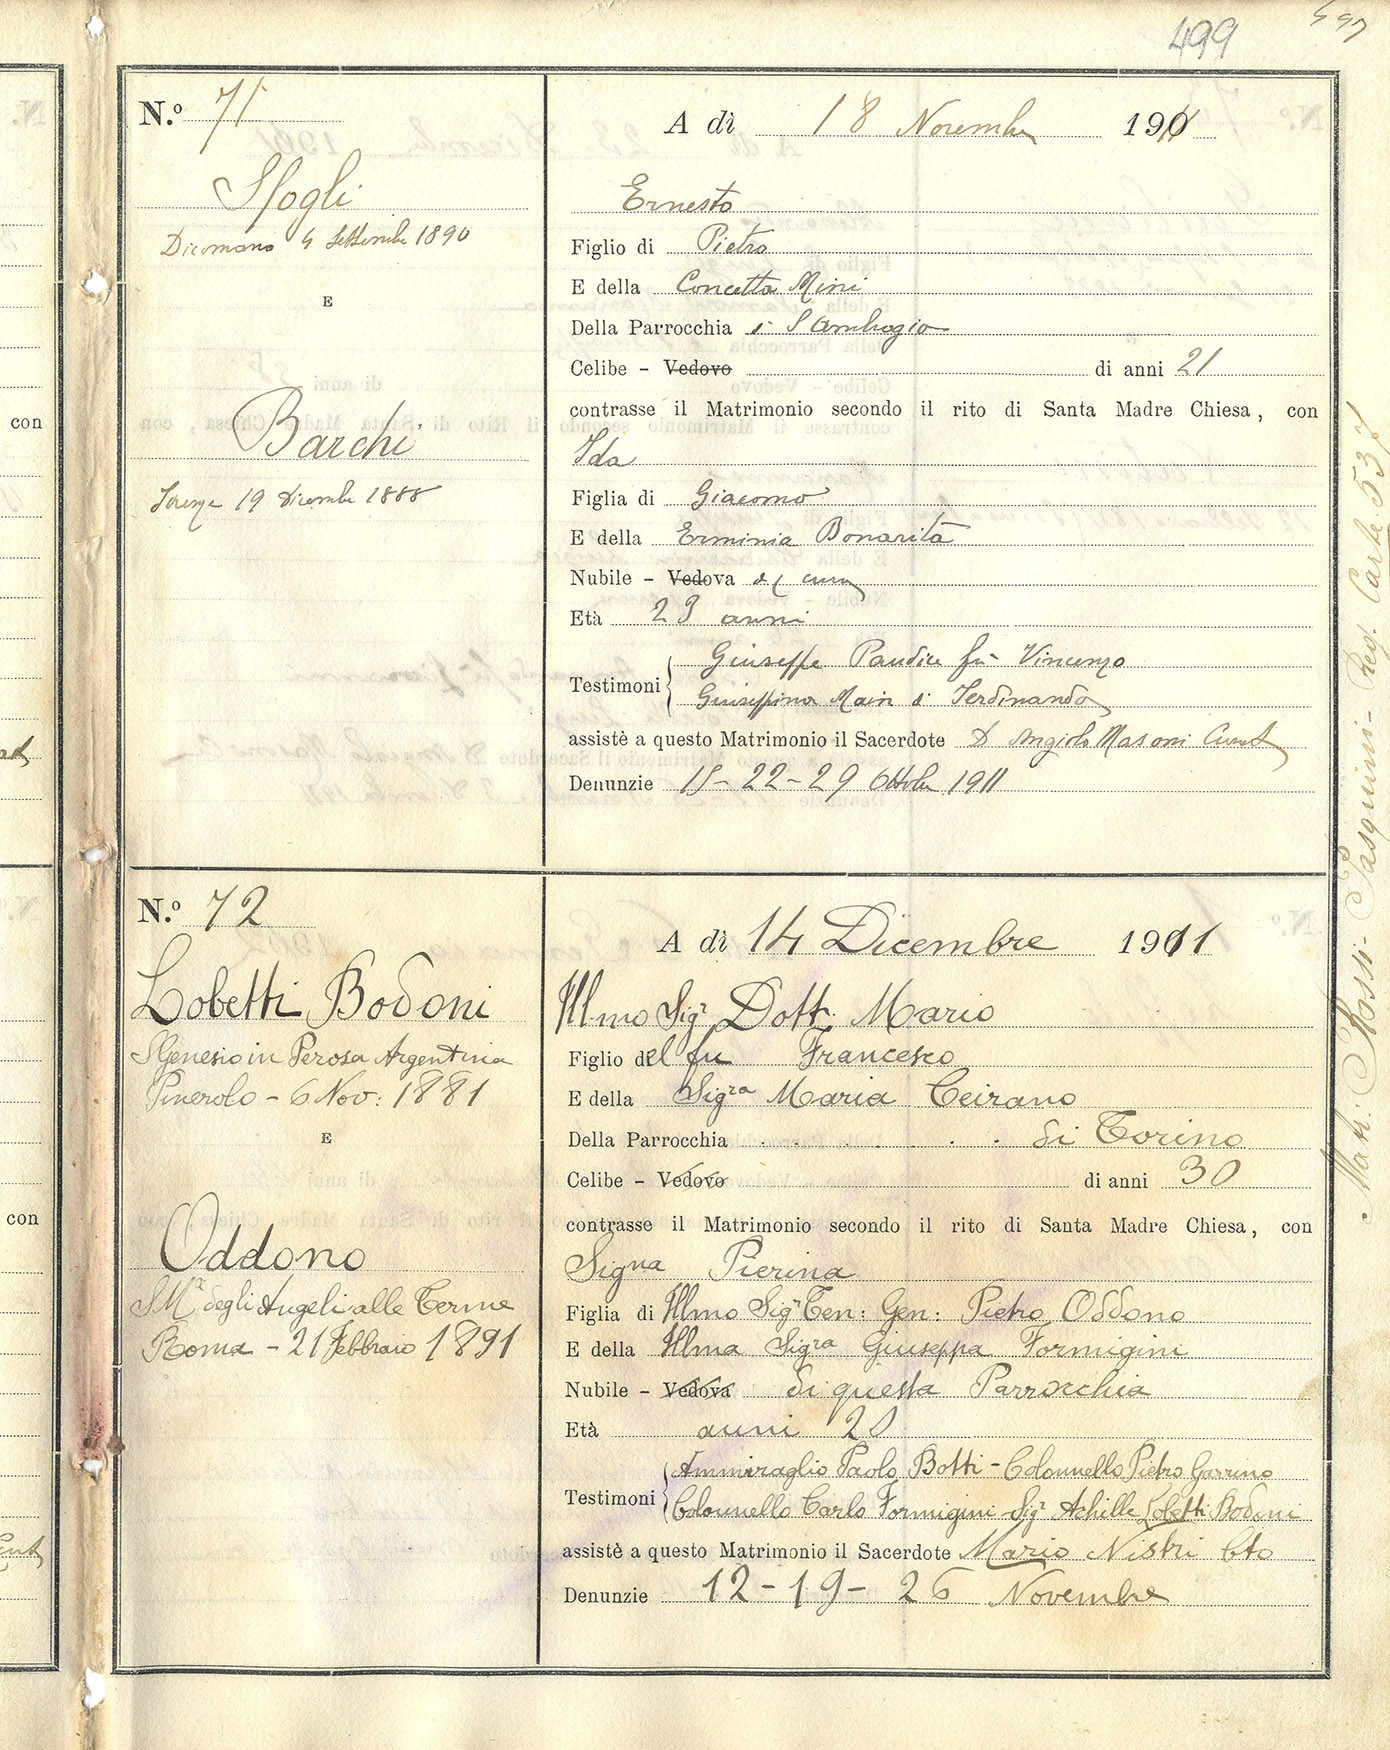 499
N.º 71
Sfogli
Dicomano 4 Settembre 1890
E
Barchi
Firenze 19 Dicembre 1888
A dì 18 Novembre 1911
Ernesto
Figlio di Pietro
E della Concetta Mini
Della Parrocchia di S Ambrogio
Celibe - Vedovo di anni 21
contrasse il Matrimonio secondo il rito di Santa Madre Chiesa, con
Ida
Figlia di Giacomo
E della Erminia Bonarita
Nubile - Vedova di cura
Età 23 anni
Testimoni Giuseppe Paudice fu Vincenzo
Giuseppina Main di Ferdinando
assistè a questo Matrimonio il Sacerdote D Angiolo Masoni Curat
Denunzie 15-22-29 Ottobre 1911
N.º 72
Lobetti Bodoni
S Genesio in Perosa Argentina
Pinerolo - 6 Nov: 1881
E
Oddono
S Mª degli Angeli alle Terme
Roma - 21 Febbraio 1891
A dì 14 Dicembre 1911
Illmo Sigr Dott. Mario
Figlio del fu Francesco
E della Sigra Maria Ceirano
Della Parrocchia . . . . di Torino
Celibe - Vedovo di anni 30
contrasse il Matrimonio secondo il rito di Santa Madre Chiesa, con
Signa Pierina
Figlia di Illmo Sigr Ten: Gen: Pietro Oddono
E della Illma Sigra Giuseppa Formigini
Nubile - Vedova di questa Parrocchia
Età anni 20
Testimoni Ammiraglio Paolo Botti - Colonnello Pietro Garrino
Colonnello Carlo Formigini - Sigr Achille Lobetti Bodoni
assistè a questo Matrimonio il Sacerdote Mario Nistri Cto
Denunzie 12-19-26 Novembre
Matr: Rossi - Pasquini - Reg. Carte 537
con
con